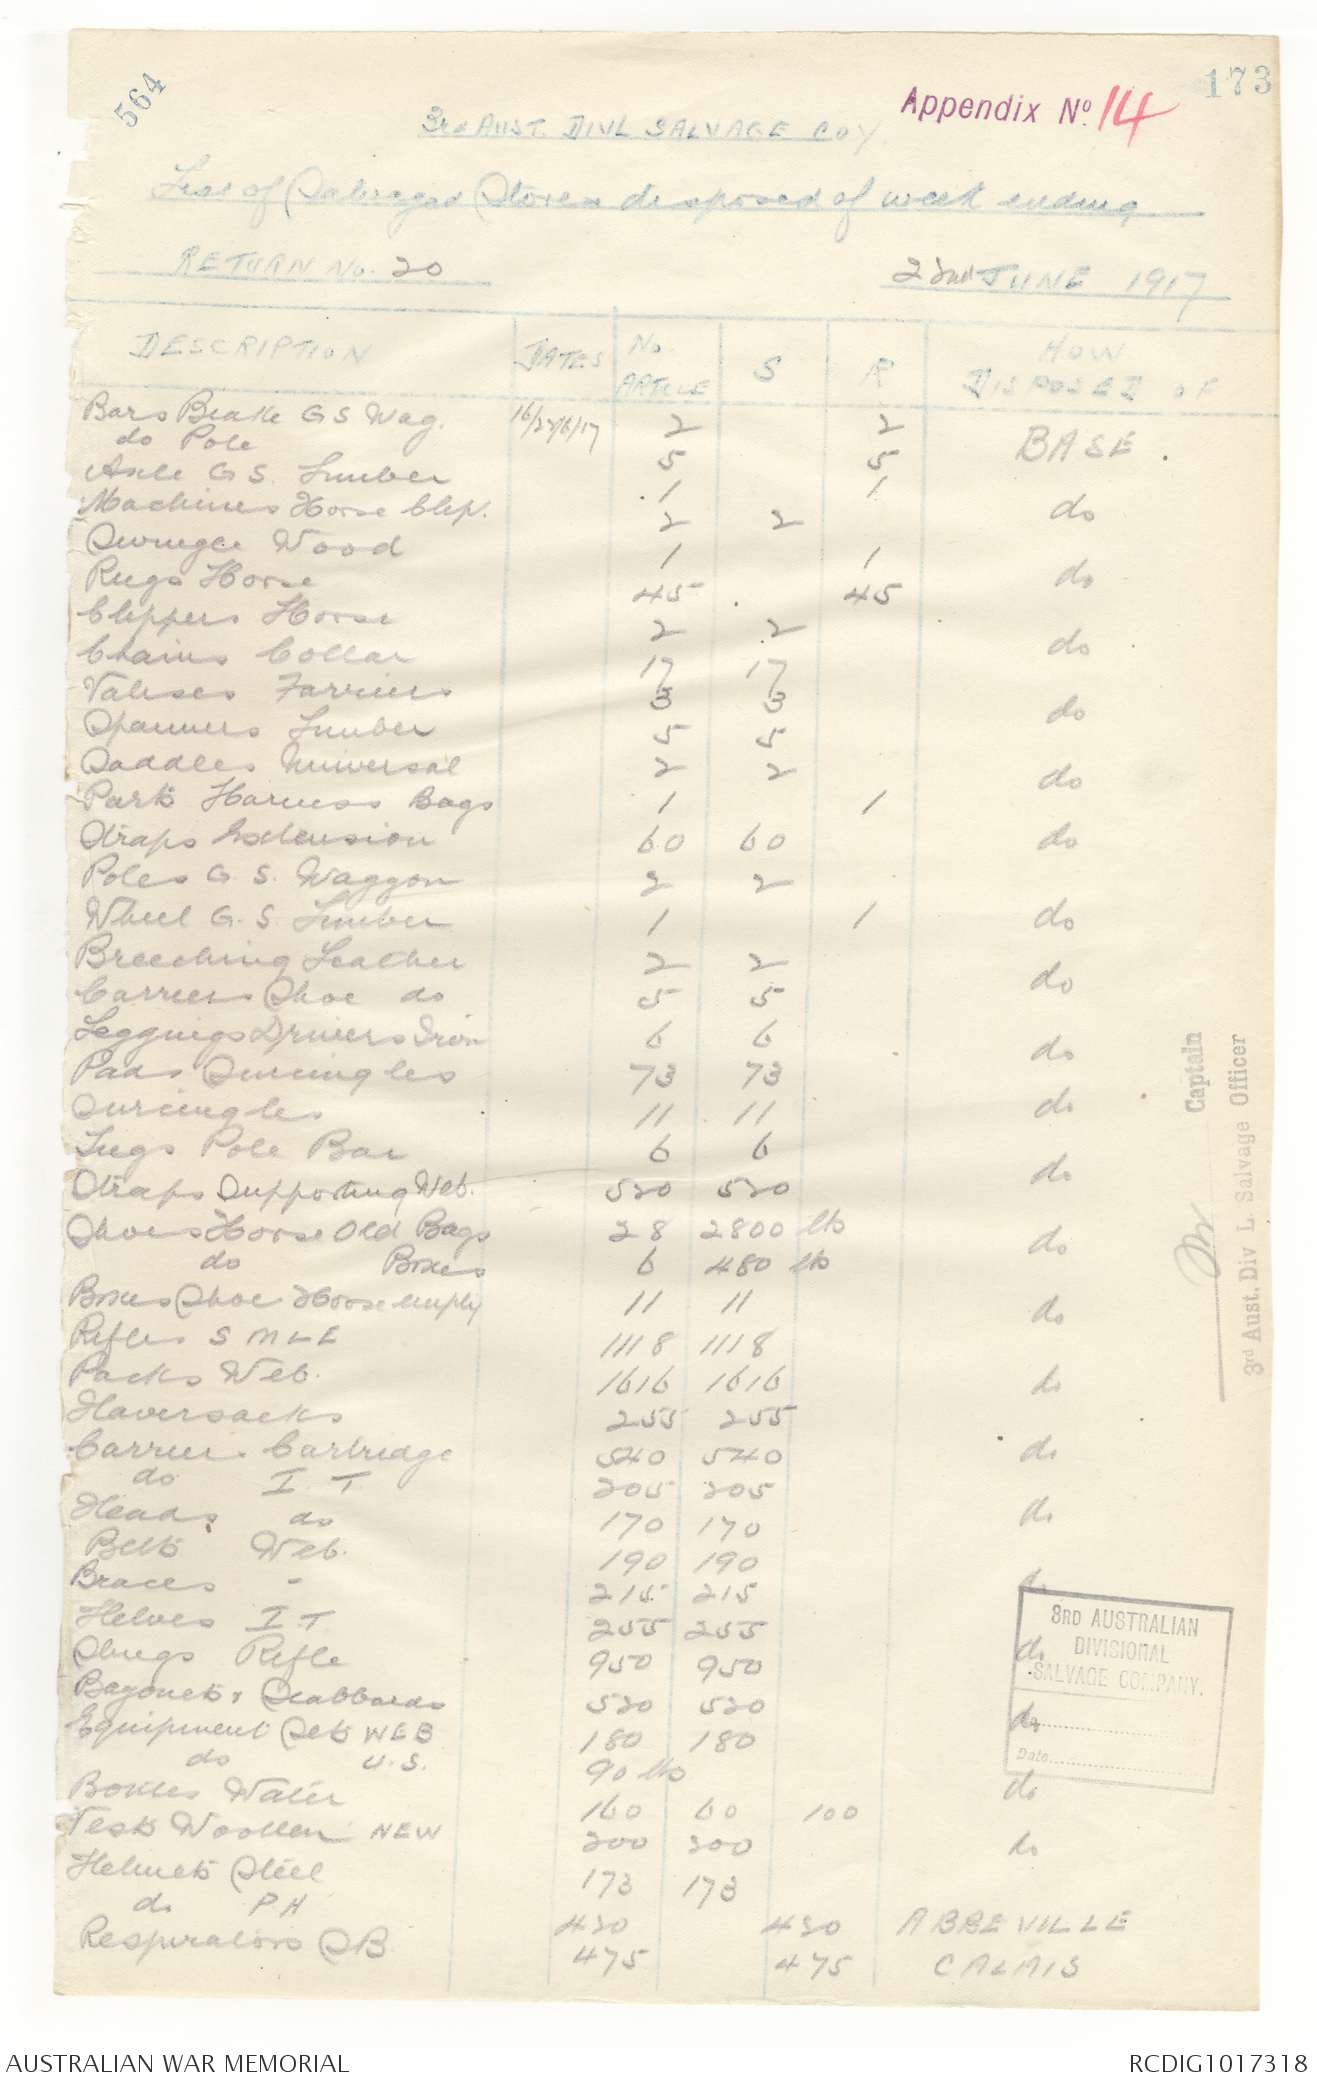 564
173
Appendix No. 14
3rd AUST. DIVL SALVAGE COY.
List of Salvaged Stores disposed of week ending
RETURN No. 20 22nd JUNE 1917
DESCRIPTION DATES No. ARTICLE S R HOW DISPOSED OF
Bars Brake G S Wag. 16/22/6/17 2 2 BASE.
do Pole 5 5
Axle G S. Limber 1 1
Machines Horse Clip. 2 2 do
Swingle Wood 1 1
Rugs Horse 45 45 do
Clippers Horse 2 2
Chains Collar 17 17 do
Valises Farriers 3 3
Spanners Limber 5 5 do
Saddles Universal 2 2
Parts Harness Bags 1 1 do
Straps Extension 60 60 do
Poles G. S. Waggon 2 2
Wheel G. S. Limber 1 1 do
Breeching Leather 2 2
Carriers Shoe do 5 5 do
Leggings Drivers Iron 6 6
Pads Surcingles 73 73 do
Surcingles 11 11 do
Lugs Pole Bar 6 6
Straps Supporting Web. 520 520 do
Shoes Horse Old Bags 28 2800 lbs
do Boxes 6 480 lbs do
Boxes Shoe Horse empty 11 11
Rifles S M L E 1118 1118 do
Packs Web. 1616 1616
Haversacks 255 255 do
Carriers Cartridge 540 540
do I. T 205 205 do
Heads do 170 170
Belts Web. 190 190 do
Braces - 215 215
Helves I.T 255 255 do
Slings Rifle 950 950
Bayonets & Scabbards 520 520 do
Equipment Sets WEB 180 180
do U.S. 90 lbs do
Bottles Water 160 60 100 do
Vests Woollen NEW 200 200
Helmets Steel 173 173 do
do P H 420 420 ABBEVILLE
Respirators SB 475 475 CALAIS
Captain
3rd Aust. Div L. Salvage Officer
3RD AUSTRALIAN
DIVISIONAL
SALVAGE COMPANY.
Date
AUSTRALIAN WAR MEMORIAL RCDIG1017318